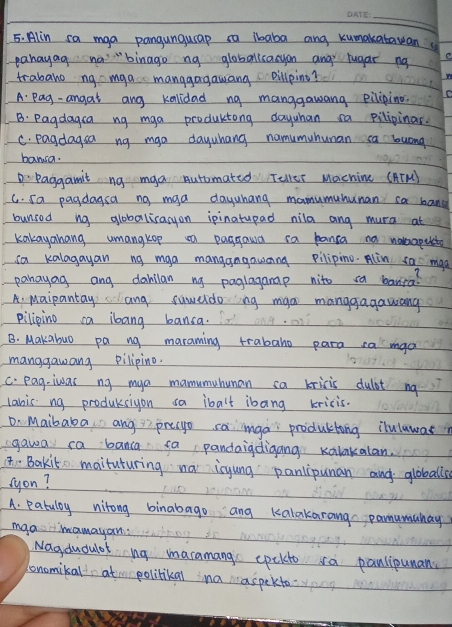 DATE:
5. Alin sa mga pangungusap sa Ibaba ang kumakatawan
pahayag na "binago ng globalisasyon ang lugar ng
trabaho ng mga manggagawang Pilipino?
A. Pag-angat ang kalidad ng manggawang Pilipino.
B. Pagdagsa ng mga produktong dayuhan sa Pilipinas.
C. Pagdagsa ng mga dayuhang namumuhunan sa buong
bansa.
D. Paggamit ng mga Automated Teller Machine (ATM)
6. Sa pagdagsa ng mga dayuhang mamumuhunan sa bansa
bunsod ng globalisasyon ipinatupad nila ang mura at
kakayahang umangkop sa paggawa sa bansa na
sa kalagayan ng mga manggagawang Pilipino. Alin sa mga
pahayag ang dahilan ng paglaganap nito sa bansa?
A. Maipantay ang suweldo ng mga manggagawang
Pilipino sa ibang bansa.
B. Makabuo pa ng maraming trabaho para sa mga
manggawang Pilipino.
C. Pag-iwas ng mga mamumuhunan sa krisis dulot ng
labis ng produksiyon sa iba't ibang krisis.
D. Maibaba ang presyo sa mga produktong iluluwas
gawa sa bansa sa pandaigdigang kalakalan.
7. Bakit maituturing na isyung panlipunan ang globalisa
syon?
A. Patuloy nitong binabago ang kalakarang pamumuhay
mga mamayan.
Nagdudulot ng maramang epekto sa panlipunan
onomikal at politikal na aspekto